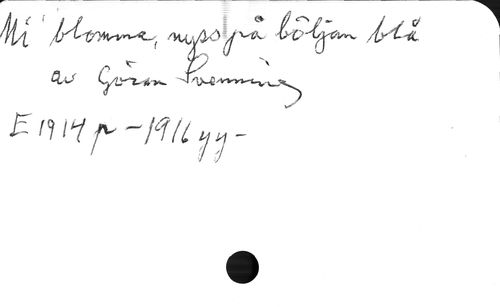 Mi blomma, nyss på böljan blå
av Göran Svenning
E 1914 p - 1916 yy -